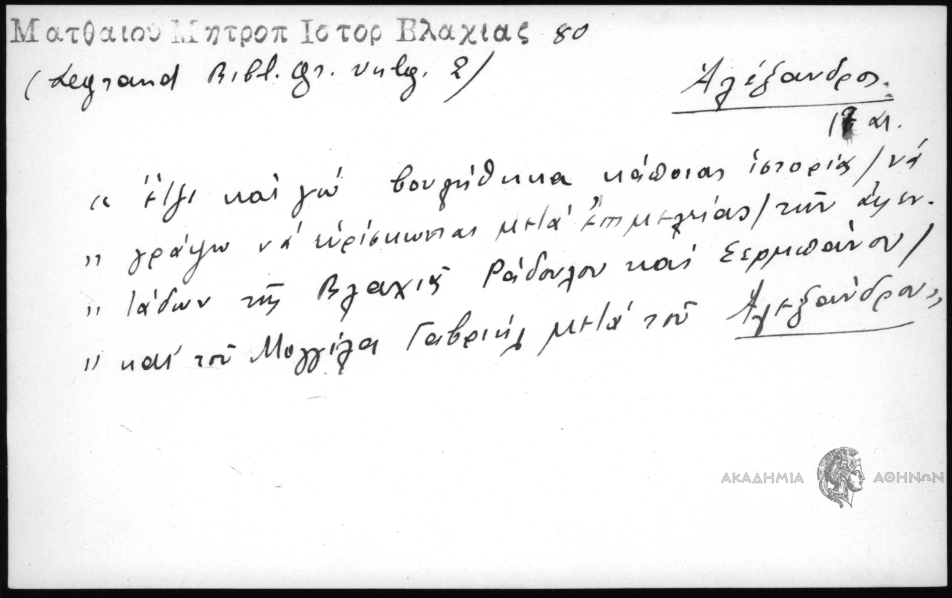 Ματθαιου Μητροπ Ιστορ Βλαχιας 80
(Legrand Bibl. gr. vulg. 2)
Ἀλέξανδρος.
17 αι.
" Ἔτζι καὶ γώ βουλήθηκα κάποιας ἱστορίας / νὰ
" γράψω νὰ εὑρίσκωνται μετὰ ἐπιμελείας / τῶν ἀφεν-
" τάδων τῆς Βλαχιᾶς Ράδουλου καὶ Σερμπάνου /
" καὶ τοῦ Μογγίλα Γαβριὴλ μετὰ τοῦ Ἀλεξάνδρου "
ΑΚΑΔΗΜΙΑ ΑΘΗΝΩΝ